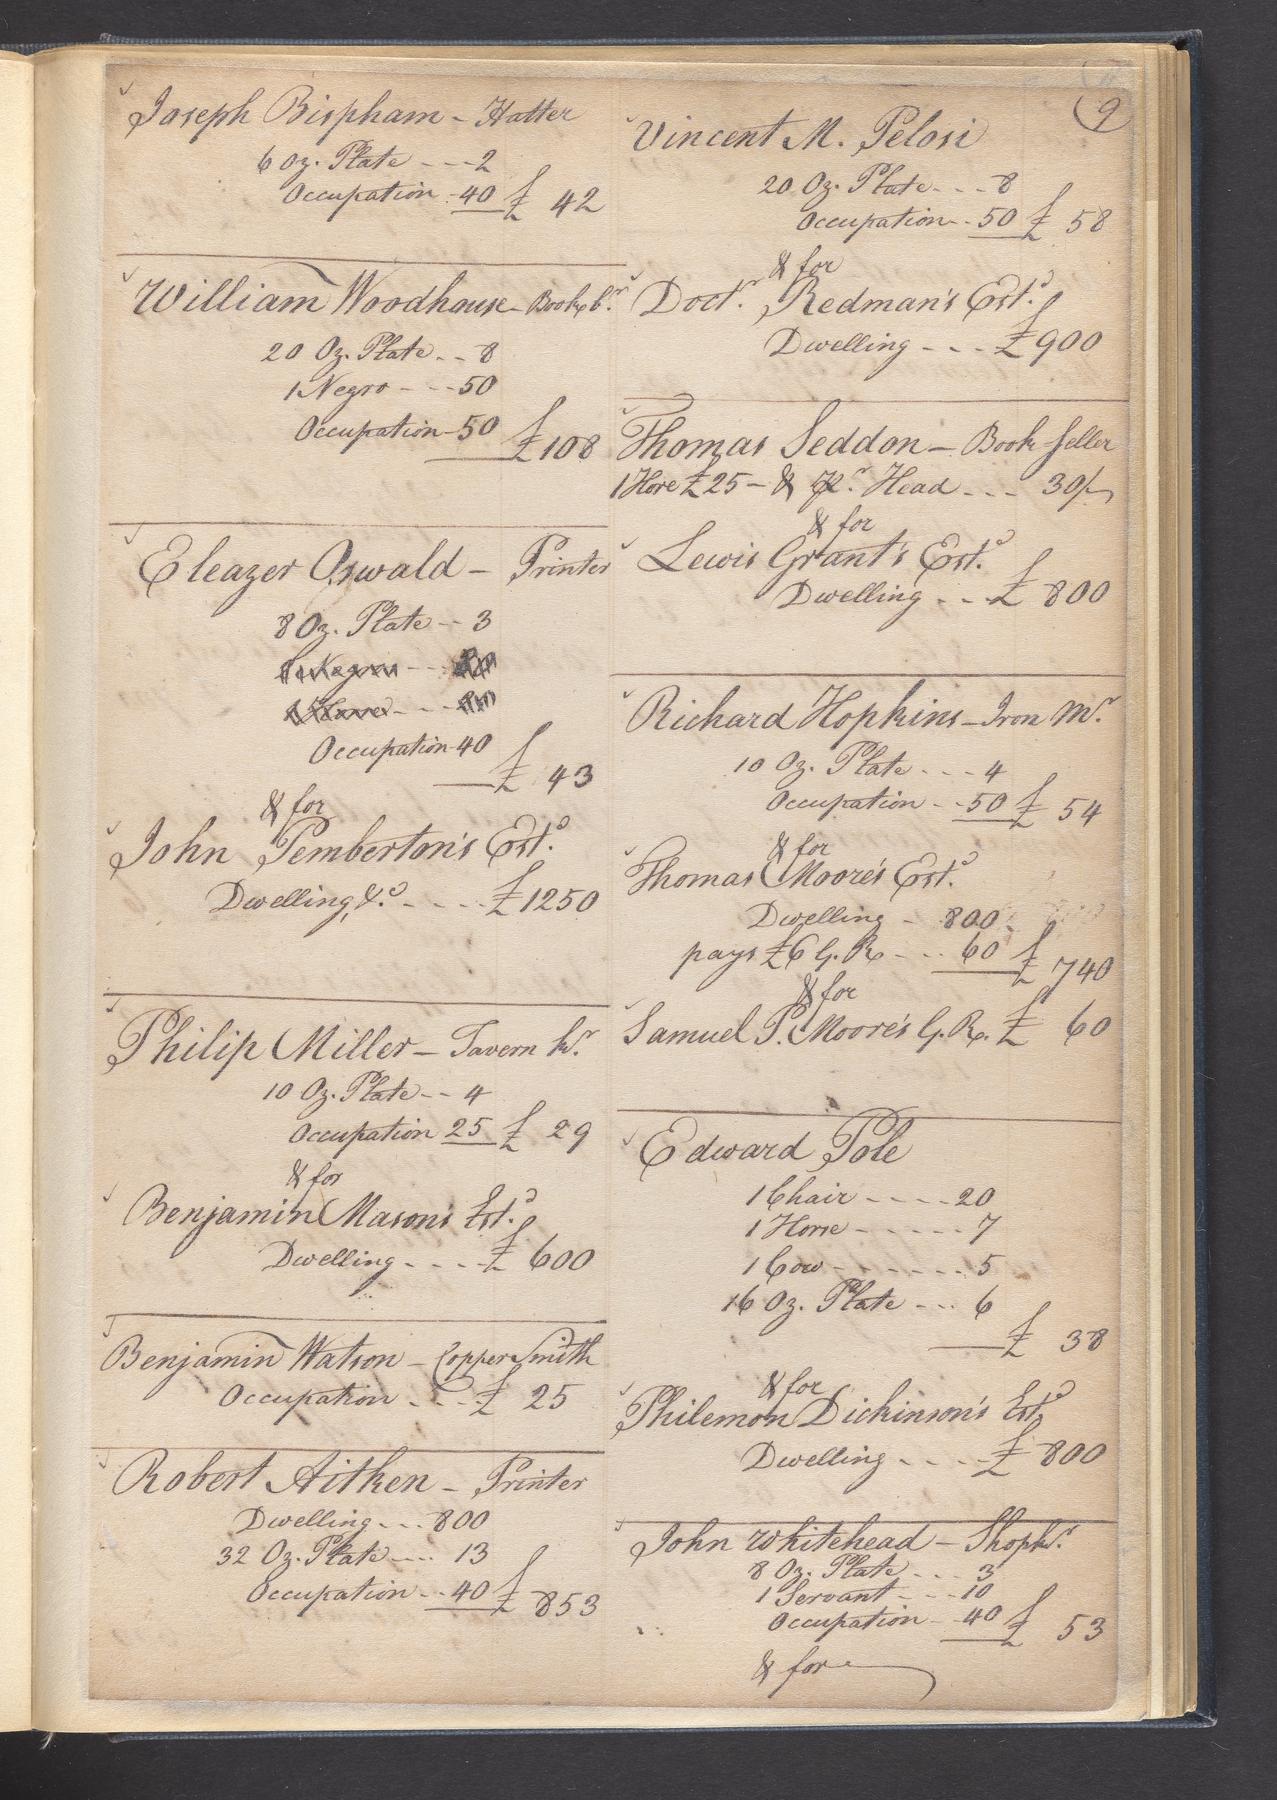 9
Joseph Bispham - Hatter
6 oz. Plate - - - 2
Occupation - 40 £ 42
William Woodhouse - Bookbr.
20 Oz. Plate - - 8
1 Negro - - - 50
Occupation - 50
£ 108
Eleazer Oswald - Printer
8 Oz. Plate - - 3
Occupation - 40
£ 43
& for
John Pemberton's Estd.
Dwelling, &c. - - - - £ 1250
Philip Miller - Tavern kr.
10 Oz. Plate - - 4
Occupation 25 £ 29
& for
Benjamin Mason's Estd.
Dwelling - - - - £ 600
Benjamin Watson - Copper Smith
Occupation - - - £ 25
Robert Aitken - Printer
Dwelling - - - 800
32 Oz. Plate - - - 13
Occupation - - 40 £ 853
Vincent M. Pelosi
20 Oz. Plate - - - 8
Occupation - - 50 £ 58
& for
Doctr. Redman's Estd.
Dwelling - - - £ 900
Thomas Seddon - Book Seller
1 Hore £ 25 - & Pr. Head - - - 30/-
& for
Lewis Grant's Estd.
Dwelling - - £ 800
Richard Hopkins - Iron Mr.
10 Oz. Plate - - - 4
Occupation - - 50 £ 54
& for
Thomas Moore's Estd.
Dwelling - 800
pays £6 G. R. - - - 60 £ 740
& for
Samuel P. Moore's G. R. £ 60
Edward Pole
1 Chair - - - - 20
1 Horse - - - - - 7
1 Cow - - - - - - 5
16 Oz. Plate - - - 6
£ 38
& for
Philemon Dickinson's Estd.
Dwelling - - - - £ 800
John Whitehead - Shopkr.
8 Oz. Plate - - - 3
1 Servant - - - 10
Occupation - - 40 £ 53
& for